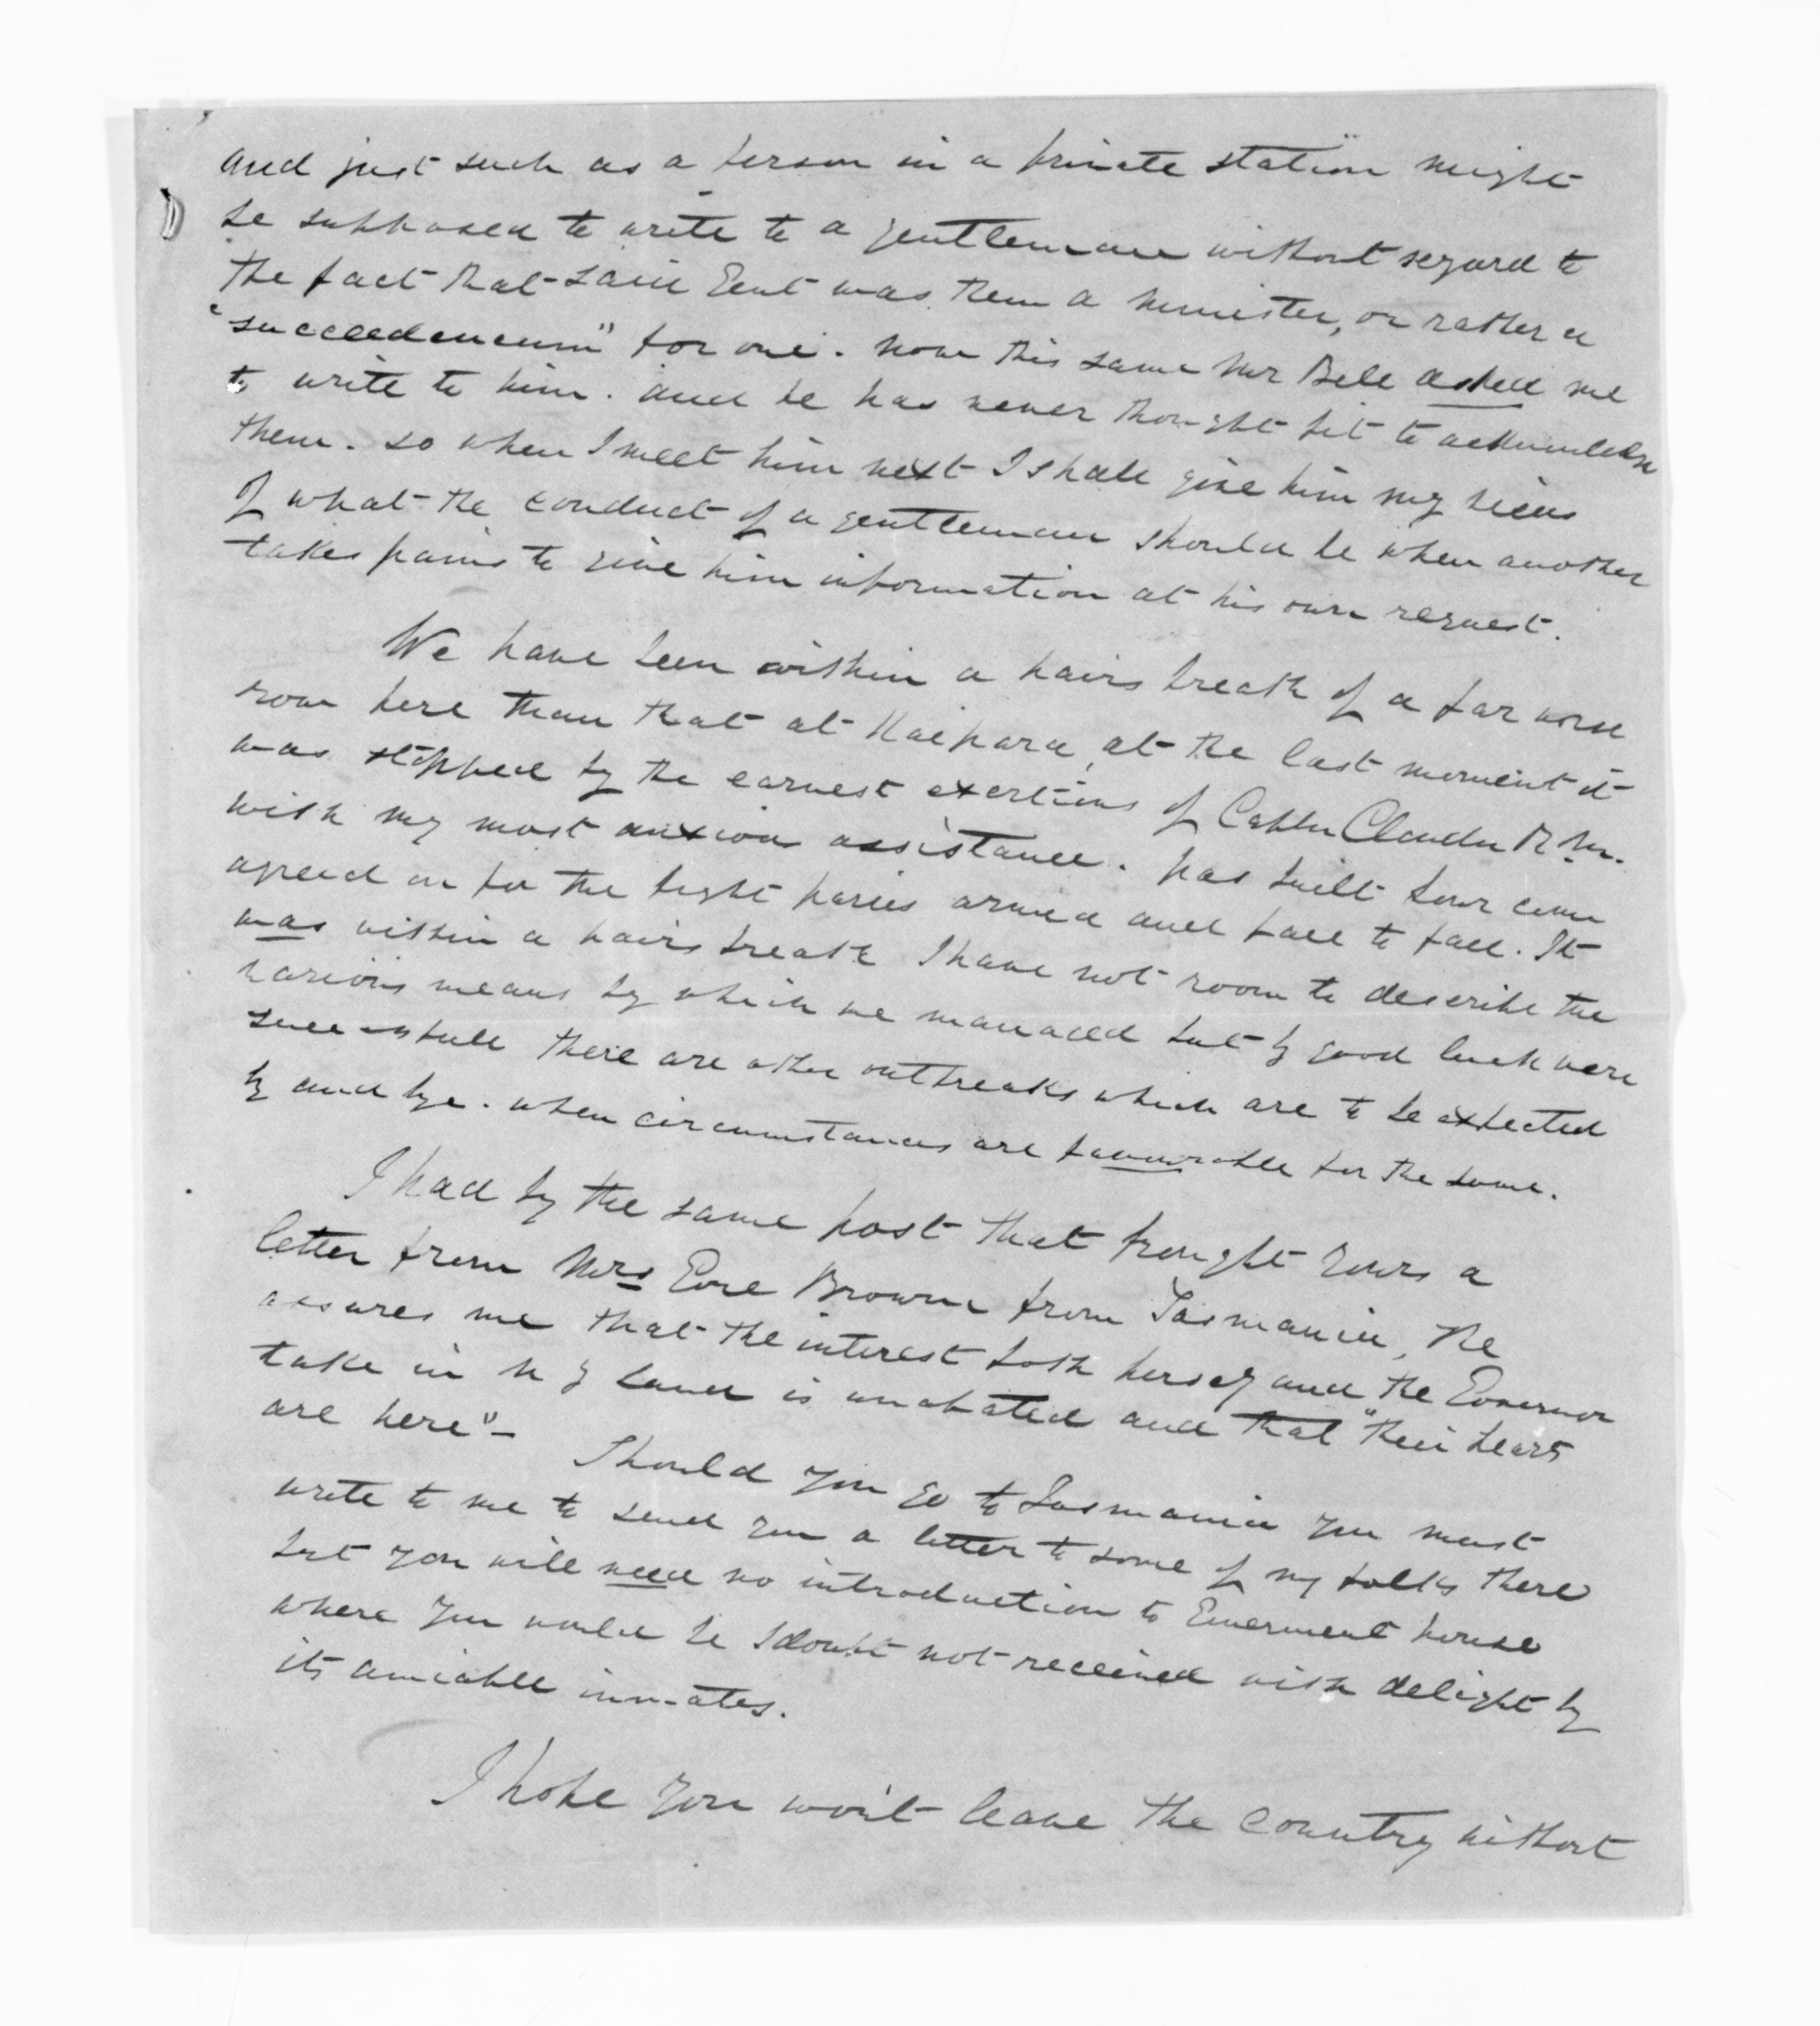 and just such as a person in a private station might
be supposed to write to a gentleman without regard to
the fact that said Gent was then a minister, or rather a
"succeedeneum" for one. now this same Mr Bell asked me
to write to him. and he has never thought fit to acknowledge
them. so when I meet him next I shall give him my views
of what the conduct of a gentleman should be when another
takes pains to give him information at his own request.
We have been within a hairs breath of a far worse
row here than that at Kaipara, at the last moment it
was stopped by the earnest exertions of Captn Clendon R.M.
with my most anxious assistance. pas built
agreed on for the fight paries armed and face to face. It
was within a hairs breath I have not room to describe the
various means by which we managed but by good luck were
successfull there are other outbreaks which are to be expected
by and bye. when circumstances are favourable for the same.
I had by the same post that brought yours a
letter from Mrs Gore Browne from Tasmania, she
assures me that the interest both herself and the Governor
take in N Z land is unabated and that "their hearts
are here" —
Should you go to Tasmania you must
write to me to send you a letter to some of my folks there
but you will need no introduction to Goverment house
where you would be I doubt not received with delight by
its amiable inmates.
I hope you wont leave the country without